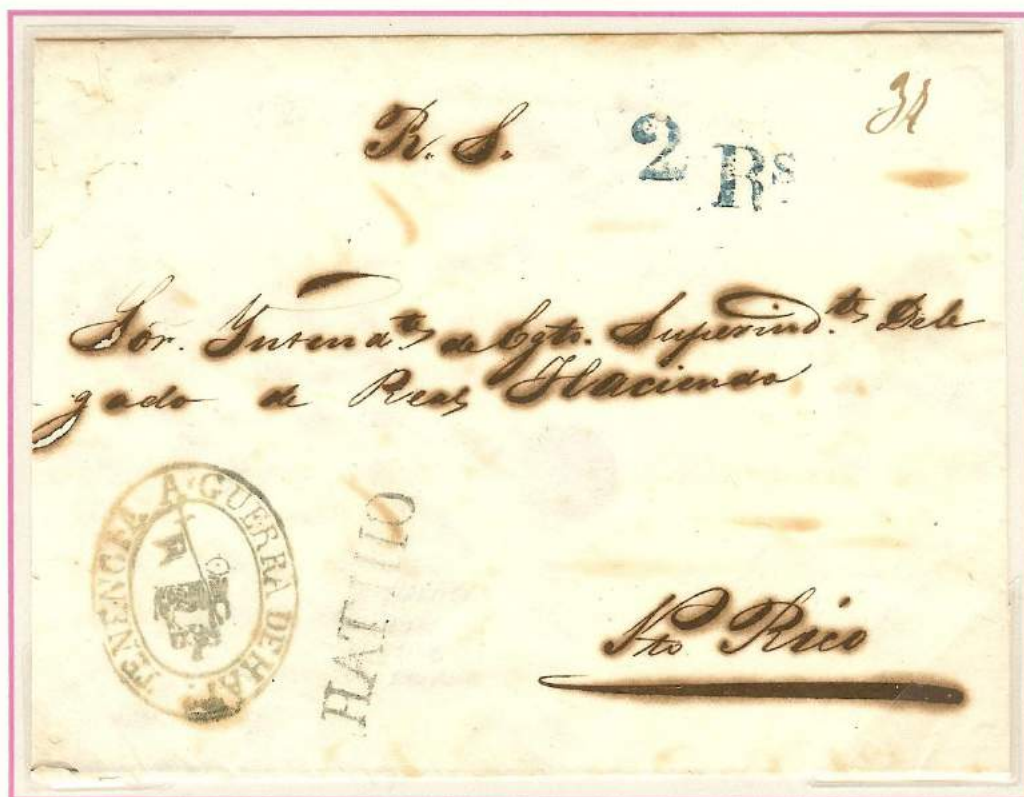 R. S.
2 Rs
Sor. Intend.te de Egto. Superind.te Dele
gado de Real Hacienda
TENENCIA A GUERRA DE HAT.
HATILLO
Pto Rico